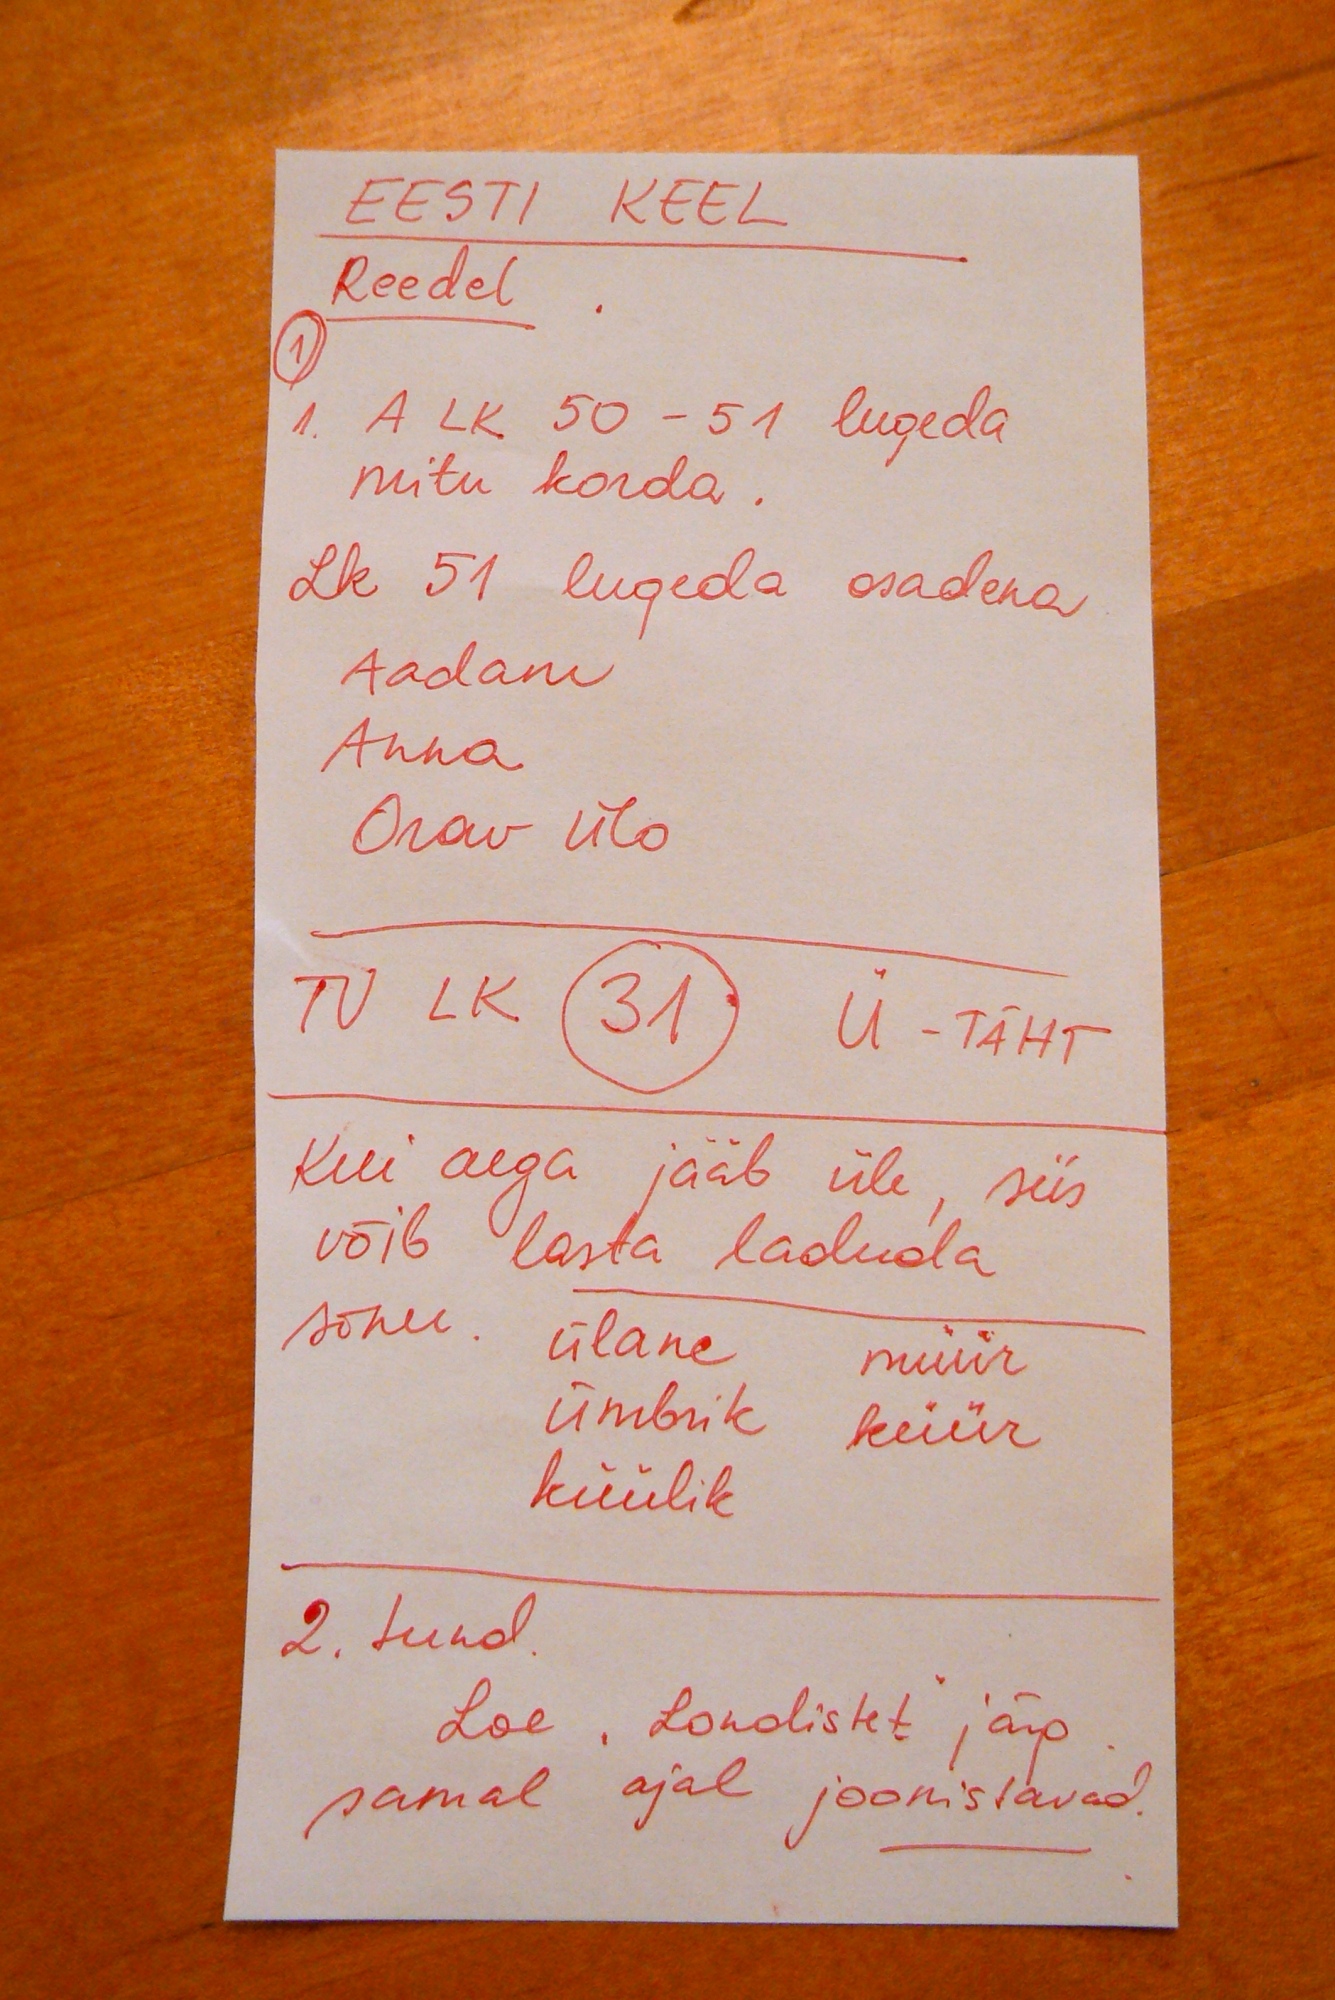 EESTI KEEL
Reedel
1
1. A LK 50 - 51 lugeda
mitu korda.
Lk 51 lugeda osadena
Aadam
Anna
Orav Ülo
TV LK 31 Ü - TÄHT
Kui aega jääb üle, siis
võib lasta laduda
sõnu.
ülane müür
ümbrik küür
küülik
2. tund.
Loe „Londistet" järg.
samal ajal joonistavad.